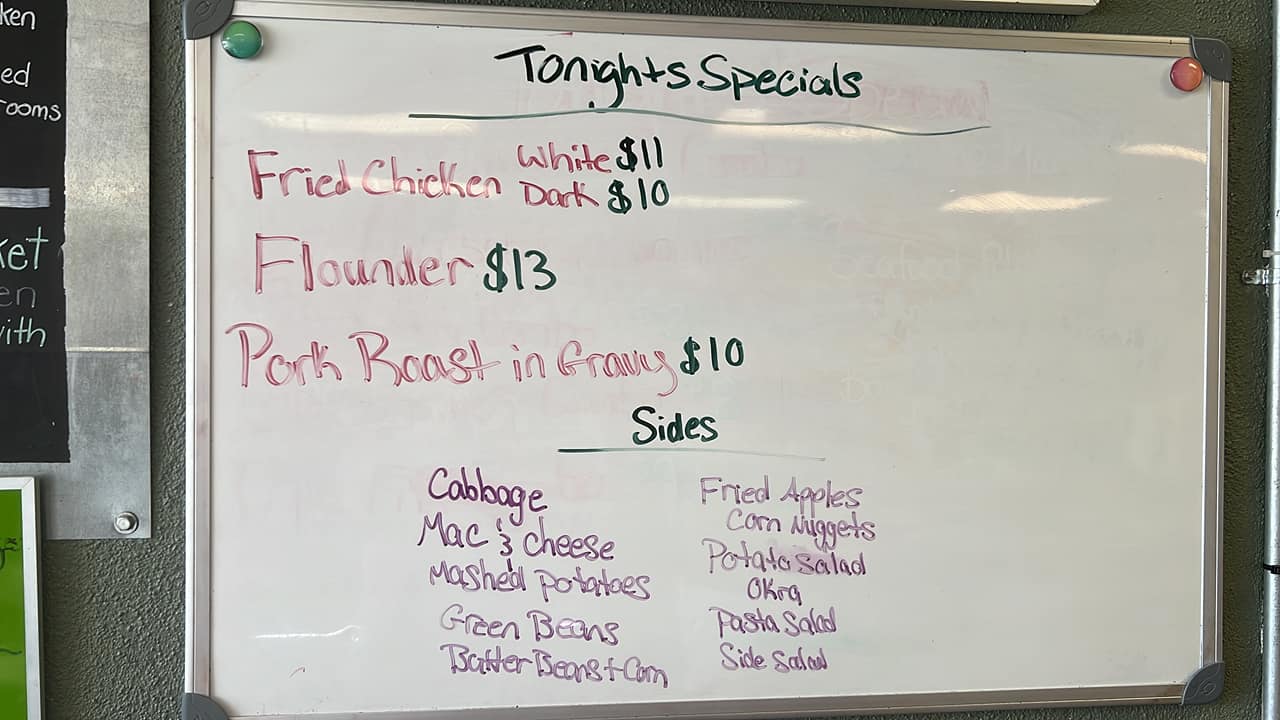 ken
ed
rooms
ket
en
with
Tonights Specials
Fried Chicken White $11
Dark $10
Flounder $13
Pork Roast in Gravy $10
Sides
Cabbage
Mac & Cheese
Mashed Potatoes
Green Beans
Butter Beans + Corn
Fried Apples
Corn Nuggets
Potato Salad
Okra
Pasta Salad
Side Salad